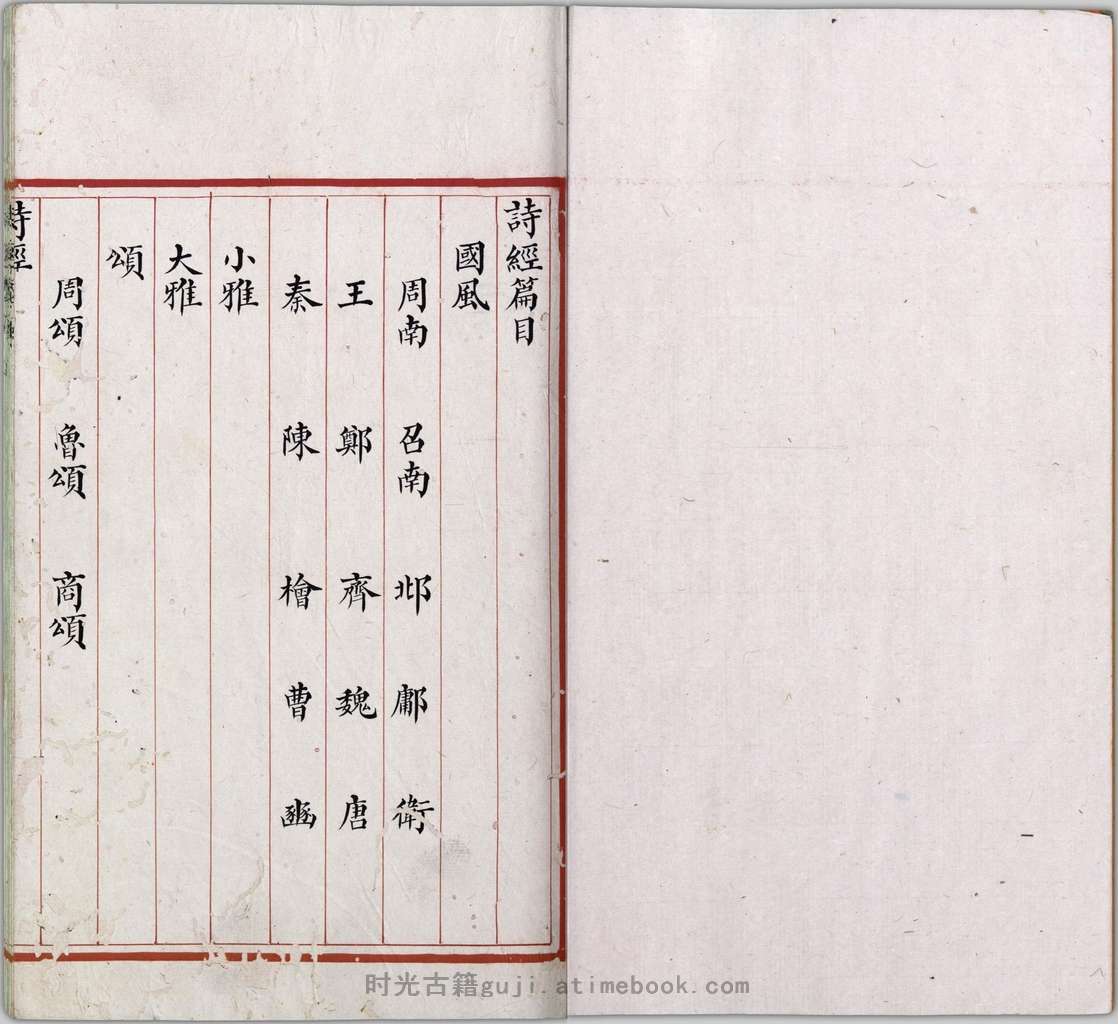 詩經篇目
國風
周南 召南 邶 鄘 衛
王 鄭 齊 魏 唐
秦 陳 檜 曹 豳
小雅
大雅
頌
周頌 魯頌 商頌
詩經
时光古籍guji.atimebook.com